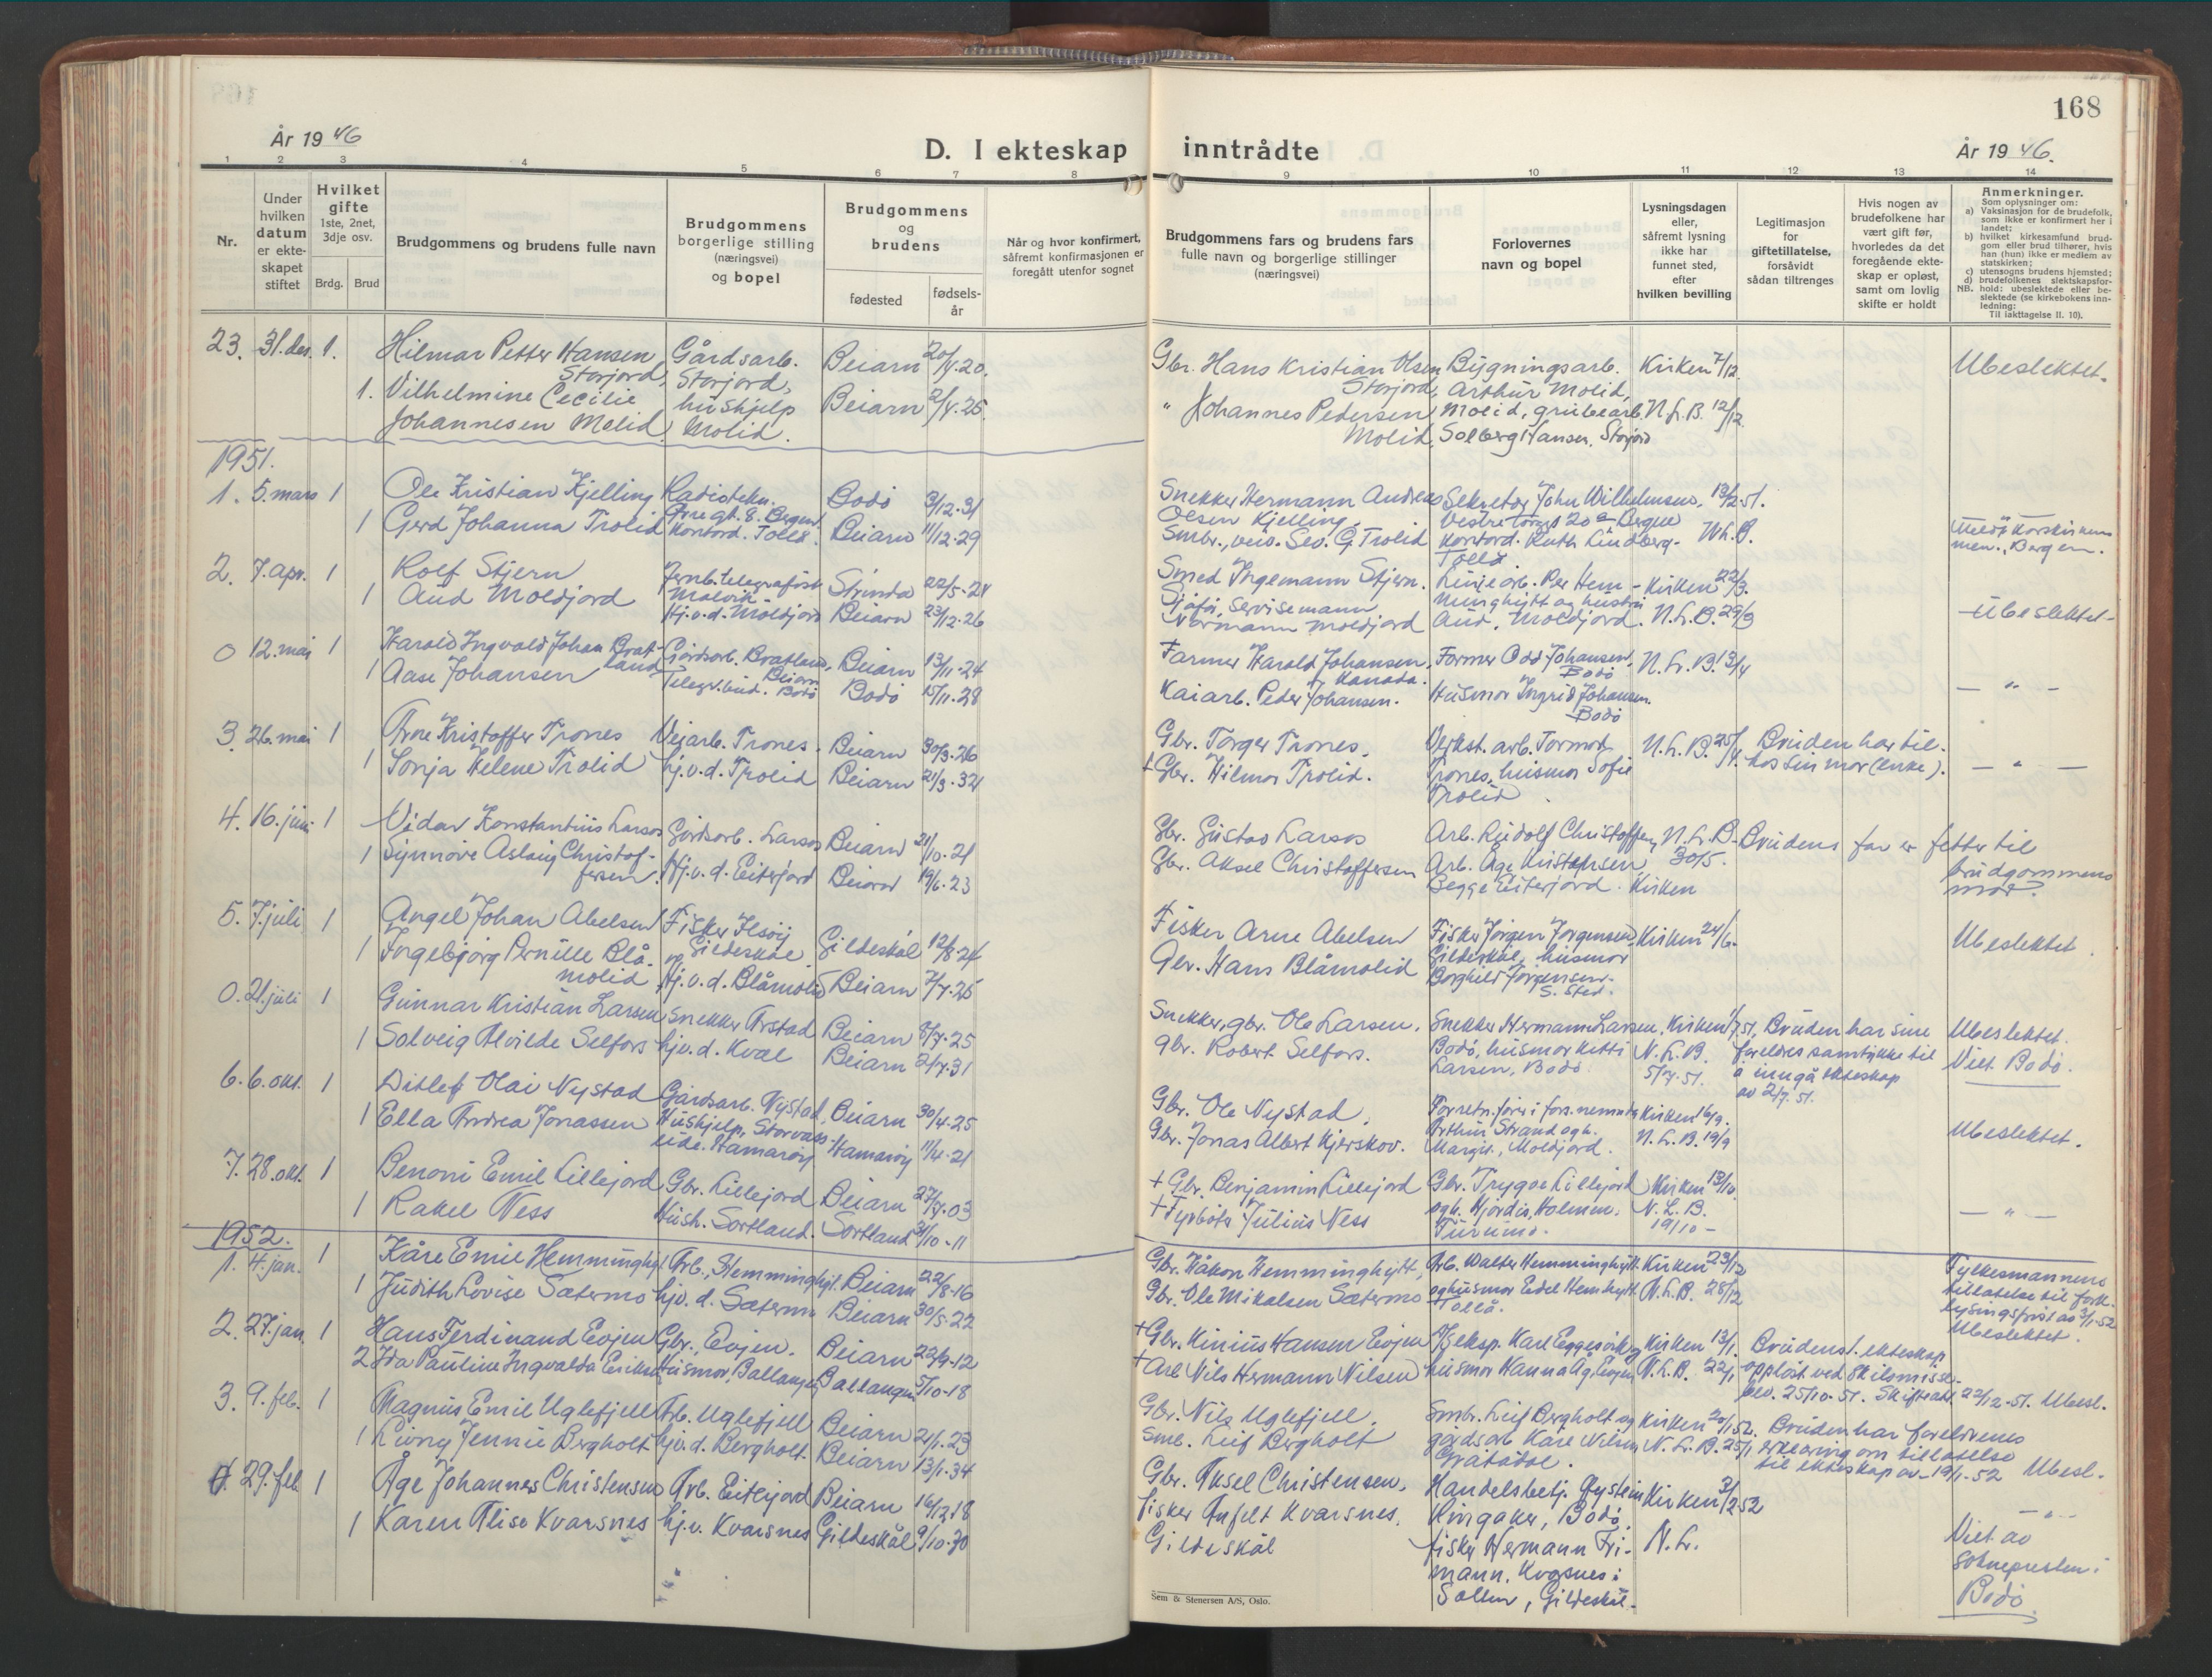 168
År 19 46
D. I ekteskap inntrådte
År 19 46.
1 2 3 4 5 6 7 8 9 10 11 12 13 14
Nr.
Under hvilken datum er ekteskapet stiftet
Hvilket gifte 1ste, 2net, 3dje osv.
Brdg. Brud
Brudgommens og brudens fulle navn
Brudgommens borgerlige stilling (næringsvei) og bopel
Brudgommens og brudens
fødested
fødselsår
Når og hvor konfirmert, såfremt konfirmasjonen er foregått utenfor sognet
Brudgommens fars og brudens fars fulle navn og borgerlige stillinger (næringsvei)
Forlovernes navn og bopel
Lysningsdagen eller, såfremt lysning ikke har funnet sted, efter hvilken bevilling
Legitimasjon for giftetillatelse, forsåvidt sådan tiltrenges
Hvis nogen av brudefolkene har vært gift før, hvorledes da det foregående ekteskap er opløst, samt om lovlig skifte er holdt
Anmerkninger.
Som oplysninger om:
a) Vaksinasjon for de brudefolk, som ikke er konfirmert her i landet;
b) hvilket kirkesamfund brudgom eller brud tilhører, hvis han (hun) ikke er medlem av statskirken;
c) utensogns brudens hjemsted;
d) brudefolkenes slektskapsforhold: ubeslektede eller beslektede (se kirkebokens innledning:
NB.
Til iakttagelse II. 10).
23. 31. des. 1. Hilmar Petter Hansen Storjord, Gårdsarb. Storjord, Beiarn 20/4.20. Gbr. Hans Kristian Olsen Storjord, Bygningsarb. Arthur Molid, Kirken 7/12. Ubeslektet.
1. Vilhelmine Cecilie Johannesen Molid hushjelp Molid. Beiarn 2/4.25. " Johannes Pedersen Molid, Molid, grubearb. Solberg Hansen, Storjord N.L.B. 12/12.
1951.
1. 5. mars 1 Ole Kristian Kjelling Radiotekn. Bodø 3/12.31 Snekker Hermann Andreas Olsen Kjelling. Sekretær John Wilhelmsen, Bergen 13/2.51.
1 Gerd Johanna Trolid Kontord. Tollå. Beiarn 11/12.29 Smbr., G. Trolid Kontord. Ruth Lindberg. Tollå. Bergen.
2. 7. apr. 1 Rolf Stjern Jernb. telegrafist Malvik Strinda 22/5.24 Smed Ingemann Stjern. Linjearb. Per Hemminghytt og hustru Kirken 22/3.
1 Aud Moldjord Hj.v.d. Moldjord Beiarn 23/12.26 Sjåfør, servisemann Normann Moldjord Aud, Moldjord. N.L.B. 29/3 Ubeslektet.
0 12. mai 1 Harald Ingvald Johan Bratland Gårdsarb. Bratland, Beiarn Beiarn 13/11.24 Farmer Harald Johansen, Kanada. Farmer Odd Johansen, Bodø N.L.B. 13/4
1 Aase Johansen Telegr.bud. Bodø Bodø 15/11.28 Kaiarb. Peder Johansen. Husmor Ingrid Johansen. Bodø — " —
3. 26. mai 1 Arne Kristoffer Trones Veiarb. Trones. Beiarn 30/3.26 Gbr. Torger Trones. Verkst. arb. Tormod Trones, husmor Sofie Trolid. N.L.B. 25/4. Bruden har til- mor (enke).
1 Sonja Helene Trolid hj.v.d. Trolid Beiarn 21/3.32 + Gbr. Hilmar Trolid. — " —
4. 16. juni 1 Vidar Konstantius Larsos Gårdsarb. Larsos Beiarn 21/10.21 Gbr. Gustav Larsos Arb. Rudolf Christoffersen N.L.B. 30/5. Brudens far er fetter til brudgommens mor.
1 Synnøve Aslaug Christoffersen. Hj.v.d. Eiterjord Beiarn 19/6.23 Gbr. Aksel Christoffersen Arb. Åge Kristensen Begge Eiterjord. Kirken
5. 7. juli 1 Angel Johan Abelsen Fisker Gildeskål Gildeskål 12/8.24 Fisker Arne Abelsen Fisker Jørgen Jørgensen, Gildeskål, husmor Borghild Jørgensen. S. sted. Kirken 24/6. Ubeslektet.
1 Ingebjørg Pernille Blåmolid Hj.v.d. Blåmolid Beiarn 7/7.25 Gbr. Hans Blåmolid
0. 21. juli 1 Gunnar Kristian Larsen Snekker Arstad Beiarn 8/7.25 Snekker, gbr. Ole Larsen. Snekker Hermann Larsen, Bodø, husmor Kitti Larsen, Bodø Kirken 1/7 51. Bruden har sine foreldres samtykke til å inngå ekteskap av 2/7.51. Ubeslektet. Viet Bodø.
1 Solveig Alvilde Selfors hj.v.d. Kval Beiarn 2/7.31 gbr. Robert Selfors. N.L.B. 5/7.51.
6. 6. okt. 1 Ditlef Olai Nystad Gårdsarb. Nystad Beiarn 30/4.25 Gbr. Ole Nystad. Forretn.fører i fors.nemnda Arthur Strand og h. Margit, Moldjord. Kirken 16/9. N.L.B. 19/9
1 Ella Andrea Jonassen Hushjelp, Hamarøy Hamarøy 11/4.21 Gbr. Jonas Albert Kjerskov. Ubeslektet.
7. 28. okt. 1 Benoni Emil Lillejord Gbr. Lillejord Beiarn 27/7.03 + Gbr. Benjamin Lillejord Gbr. Trygve Lillejord og h. Hjørdis, Holmen, Furumo. Kirken 13/10 N.L.B. 19/10 —
1 Rakel Ness Hush. Sortland. Sortland 31/10.11 + Fyrbøter Julius Ness — " —
1952.
1. 4. jan. 1 Kåre Emil Hemminghytt Arb., Hemminghytt. Beiarn 22/8.16 Gbr. Håkon Hemminghytt, Arb. Walter Hemminghytt og husmor Eidel Hemhytt. Tollå. Kirken 23/12 Fylkesmannens tillatelse til fork. lysingsfrist av 3/1-52 Ubeslektet.
1 Judith Lovise Sætermo hjv. d. Sætermo Beiarn 30/5.22 Gbr. Ole Mikalsen Sætermo N.L.B. 28/12
2. 27. jan. 1 Hans Ferdinand Evjen Gbr., Evjen. Beiarn 22/9-12 + Gbr. Kinius Hansen Evjen Karl Eggesvik og husmor Hanna Ag. Evjen Kirken 13/1. Brudens 1. ekteskap oppløst ved skilsmisse bev. 25/10-51. Skifteatt. 22/12-51. Ubesl.
2 Ida Pauline Ingvalda Eriksen Husmor, Ballangen Ballangen 5/10-18 + Arb. Nils Hermann Nilsen N.L.B. 22/1
3. 9. feb. 1 Magnus Emil Uglefjell Arb. Uglefjell Beiarn 21/1.23 Gbr. Nils Uglefjell. Smbr. Leif Bergholt og gårdsarb. Kåre Nilsen Gråtådal. Kirken 20/1.52. Bruden har foreldrenes erklæring om tillatelse til ekteskap av 19/1-52 Ubesl.
1 Livny Jennie Bergholt hjv.d. Bergholt. Beiarn 13/1.34 Smb. Leif Bergholt N.L.B. 25/1
4. 29. feb. 1 Åge Johannes Christensen Arb. Eiterjord Beiarn 16/12 18 Gbr. Aksel Christensen, Handelsbetj. Øystein Ringaker, Bodø, Kirken 3/2 52 — " —
1 Karen Alise Kvarsnes hj.v. Kvarsnes Gildeskål 9/10.30 fisker Anfelt Kvarsnes, Gildeskål fisker Hermann Frimann, Sollun, Gildeskål. N.L. Viet av soknepresten i Bodø
Sem & Stenersen A/S, Oslo.